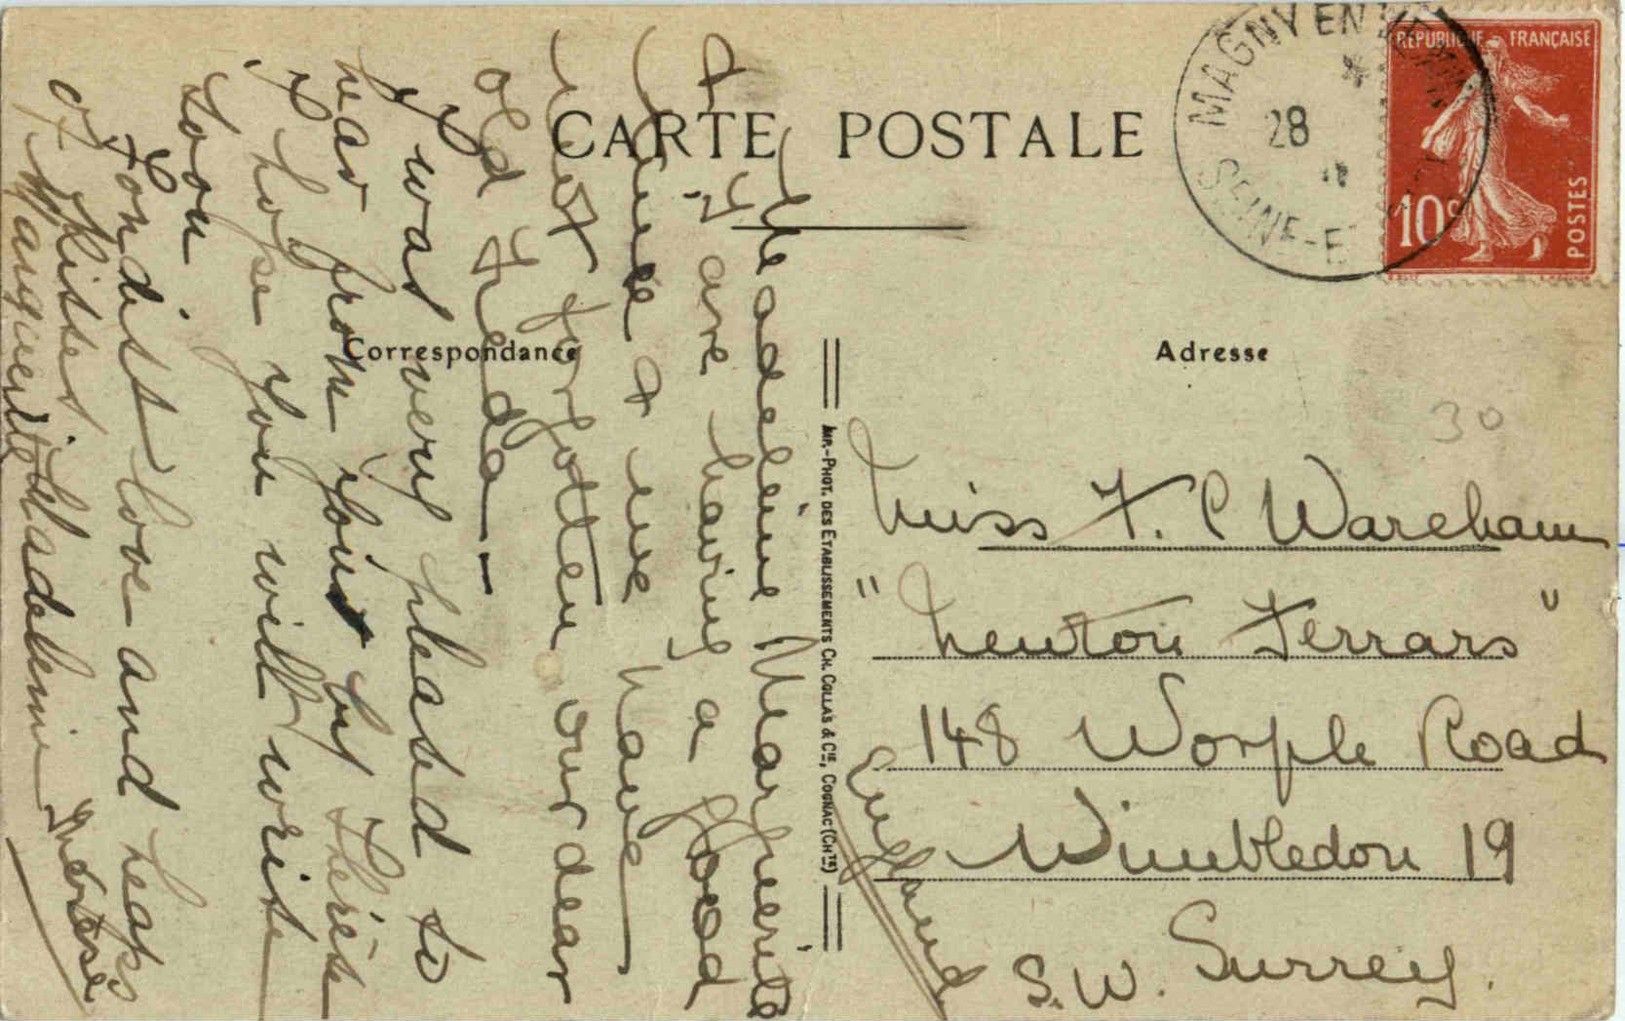 CARTE POSTALE
Correspondance
Adresse
MAGNY EN
28
SEINE-E
RÉPUBLIQUE FRANÇAISE
10c
POSTES
30
IMP.-PHOT. DES ETABLISSEMENTS CH. COLLAS & Cie, COGNAC (Chte)
Madeleine Marguerite
& I are having a good
time & we have
not forgotten our dear
old Freda —
I was very pleased to
hear from you by Thérèse
I hope you will write
soon
Fondist love and heaps
of kisses
Marguerite Madeleine Thérèse
Miss F. C Wareham
"Newton Ferrars"
148 Worple Road
Wimbledon 19
S.W. Surrey.
England